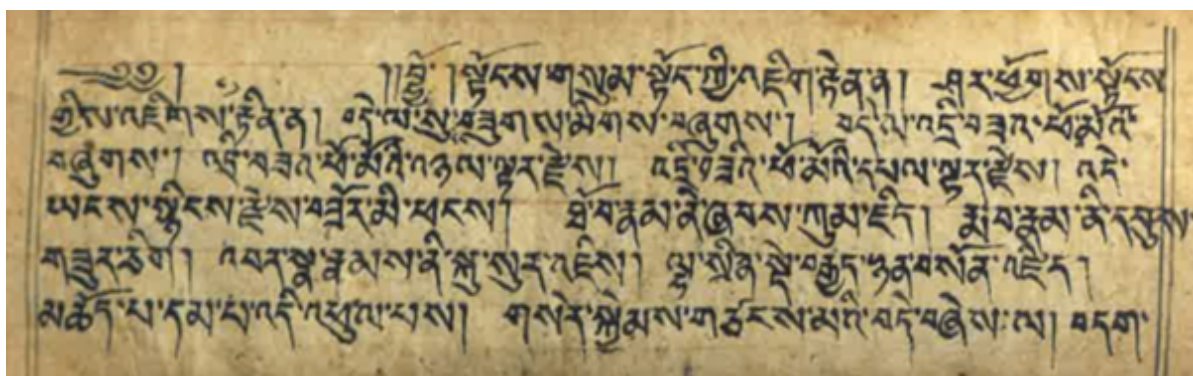 ༄༅། །ཟླ་ །སྟོངས་གསུམ་སྟོང་ཀྱི་འཇིག་རྟེན་ན། ཤར་ཕྱོགས་སྟོངས
གྱིས་འཇིགས་རྟེན་ན། བདེ་ལ་སུ་བཟུགས་མིགས་བཞུགས།། བདེ་ལ་འདྲི་བཟའ་ཕོ་མོའི་
བཞུགས།། འདྲི་བཟའ་ཕོ་མོའི་འཉལ་ལྟར་རྫེས། འདྲི་བཟའི་ཕོ་མོའི་དཔལ་ལྟར་རྫེས། འདེ་
ཡངས་སྙིངས་རྗེས་བཟོར་མི་ཕངས། ཐོ་བ་རྣམ་ནི་ཞབས་ཀུམ་ཇིད། རྨ་བ་རྣམ་ནི་དབུས
གཟུར་ཅིག། འབར་སྣ་རྣམས་ནི་སྐུ་སུར་འཇིས།། ལྷ་སྲིན་སྡེ་བརྒྱད་ཉན་བསོན་འཇེད།
མཆོད་པ་དམ་པ་འདི་འཕུལ་པས། གསེར་སྐྱེམས་གཙང་མ་འི་བདེ་བཞེས་ལ། བདག་